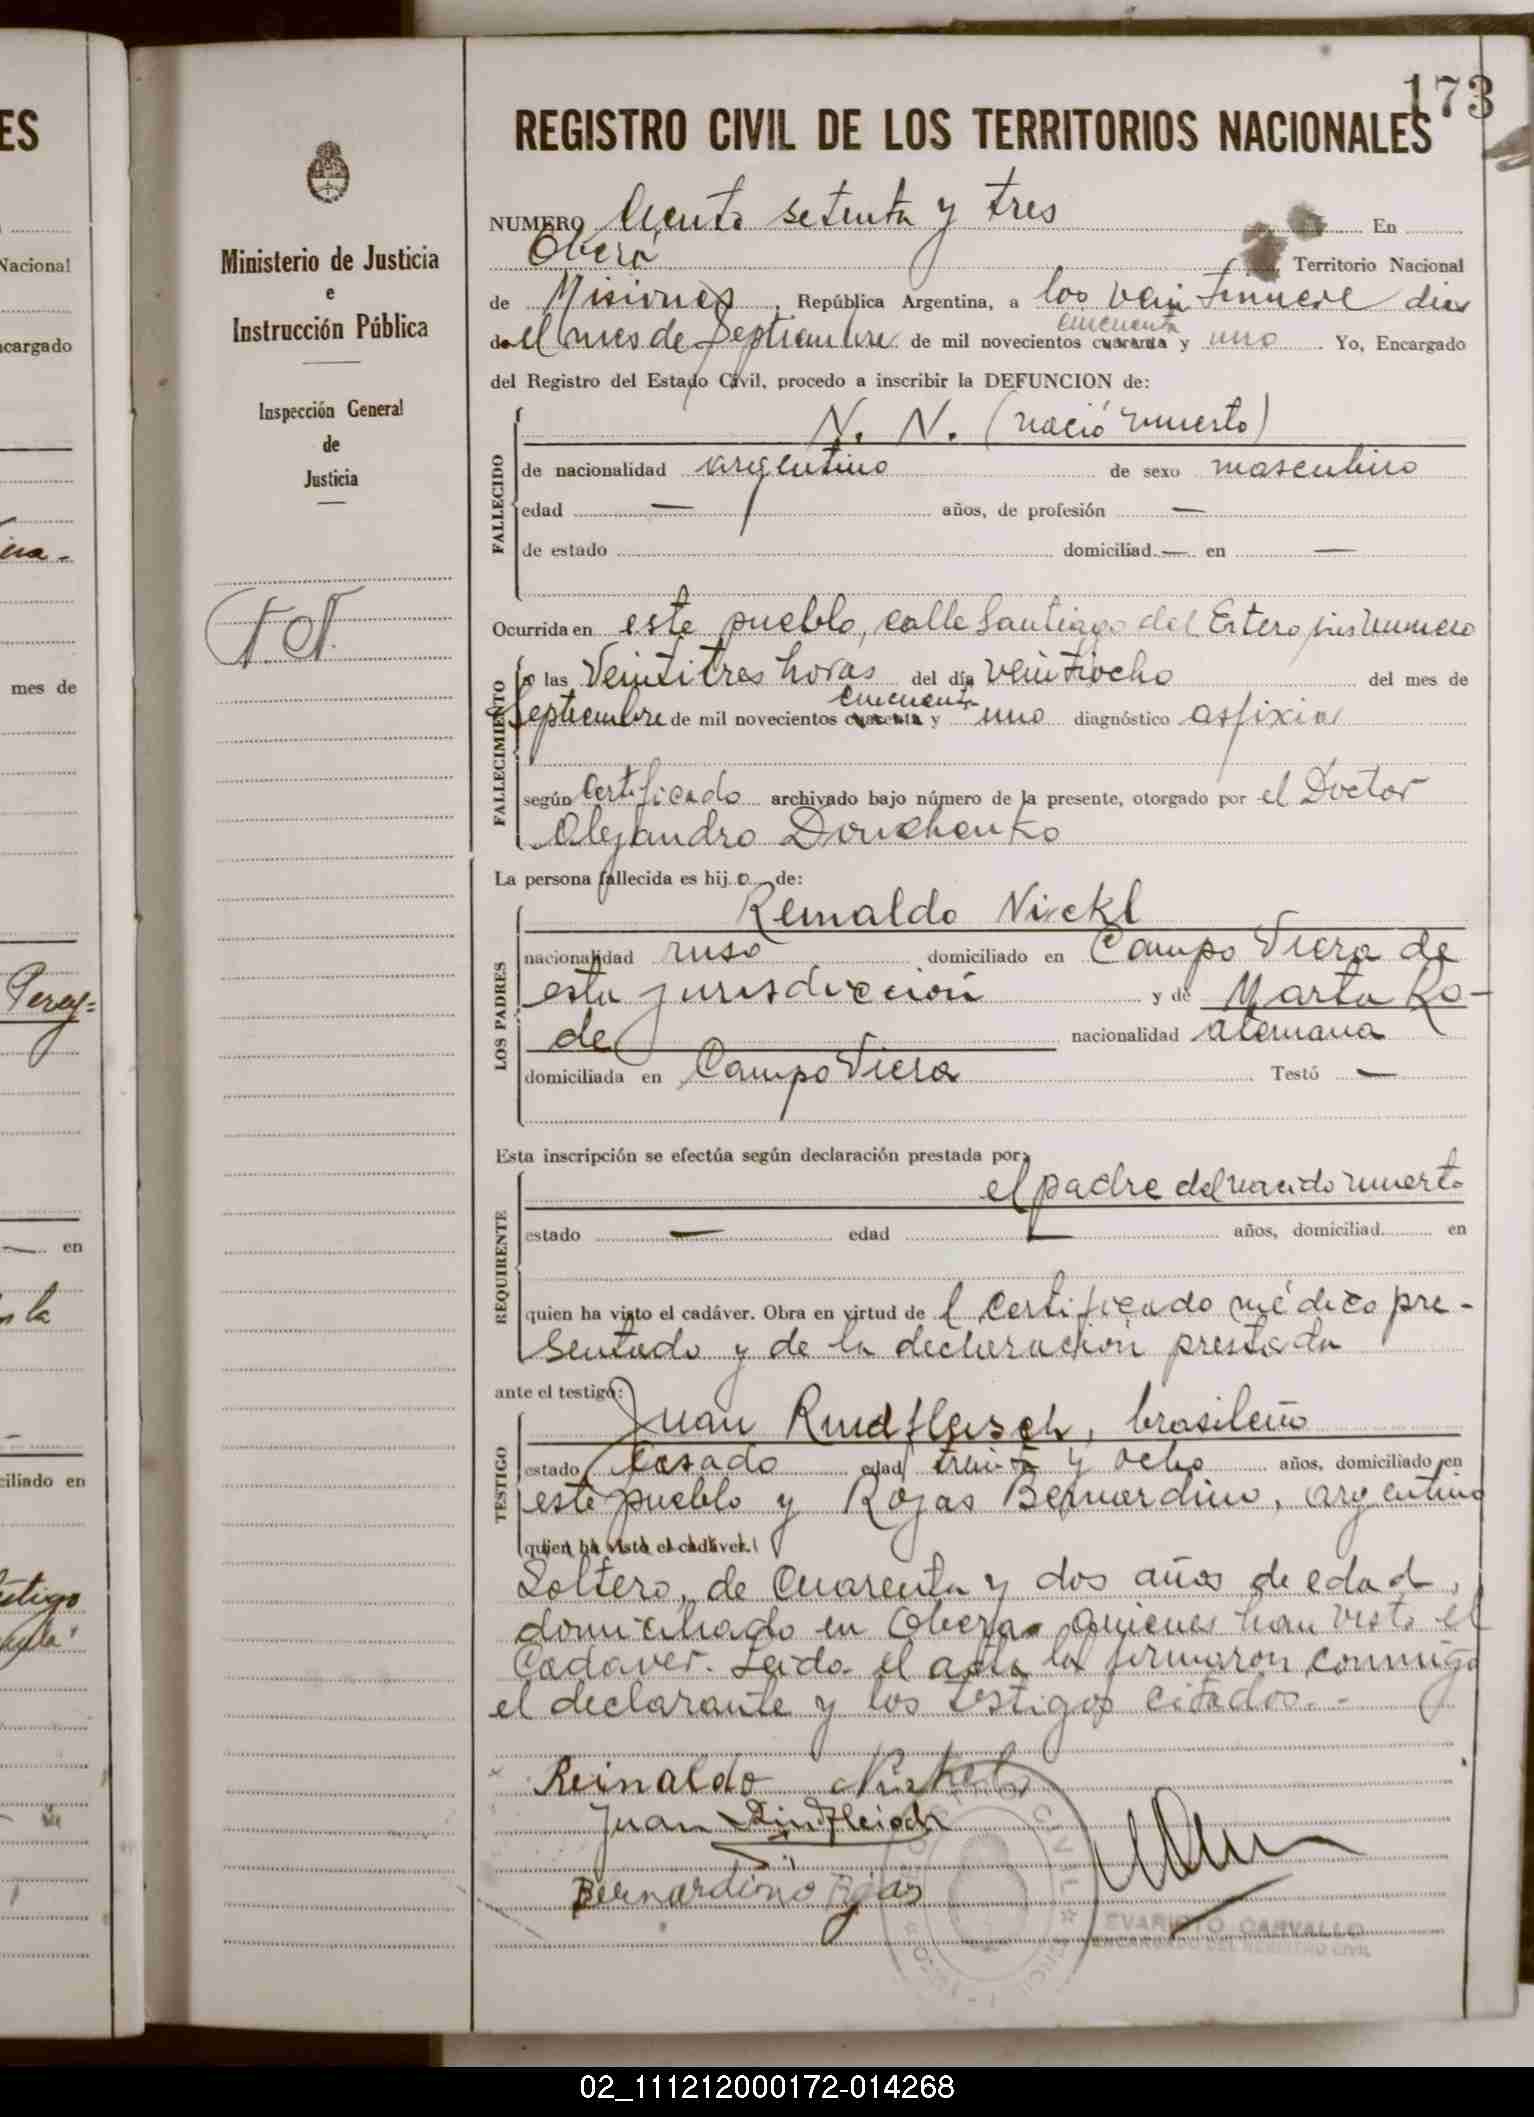 173
REGISTRO CIVIL DE LOS TERRITORIOS NACIONALES
Ministerio de Justicia
e
Instrucción Pública
Inspección General
de
Justicia
N N.
NUMERO Ciento setenta y tres En
Oberá Territorio Nacional
de Misiones, República Argentina, a los veintinueve dias
del mes de Septiembre de mil novecientos cuarenta cincuenta y uno. Yo, Encargado
del Registro del Estado Civil, procedo a inscribir la DEFUNCION de:
FALLECIDO
N. N. (nació muerto)
de nacionalidad argentino de sexo masculino
edad — años, de profesión —
de estado domiciliad — en —
Ocurrida en este pueblo, calle Santiago del Estero sin numero
FALLECIMIENTO
a las Veintitres horas del día veintiocho del mes de
Septiembre de mil novecientos cuarenta cincuenta y uno diagnóstico asfixia
según Certificado archivado bajo número de la presente, otorgado por el Doctor
Alejandro Donchenko
La persona fallecida es hijo de:
LOS PADRES
Reinaldo Nickl
nacionalidad ruso domiciliado en Campo Viera de
esta jurisdicción y de Marta Ro-
de nacionalidad alemana
domiciliada en Campo Viera Testó —
Esta inscripción se efectúa según declaración prestada por:
REQUIRENTE
el padre del nacido muerto
estado — edad — años, domiciliad en
quien ha visto el cadáver. Obra en virtud de l Certificado médico pre-
sentado y de la declaración prestada
ante el testigo:
TESTIGO
Juan Rindfleisch, brasileño
estado Casado edad treinta y ocho años, domiciliado en
este pueblo y Rojas Bernardino, argentino
quien ha visto el cadáver.
Soltero, de Cuarenta y dos años de edad,
domiciliado en Oberá quienes han visto el
Cadaver. Leida el acta la firmaron conmigo
el declarante y los testigos citados.-
Reinaldo Nickel
Juan Rindfleisch
Bernardino Rojas
CIVIL
EVARISTO CARVALLO
ENCARGADO DEL REGISTRO CIVIL
ES
Nacional
ncargado
mes de
Perey=
en
la
ciliado en
02_111212000172-014268